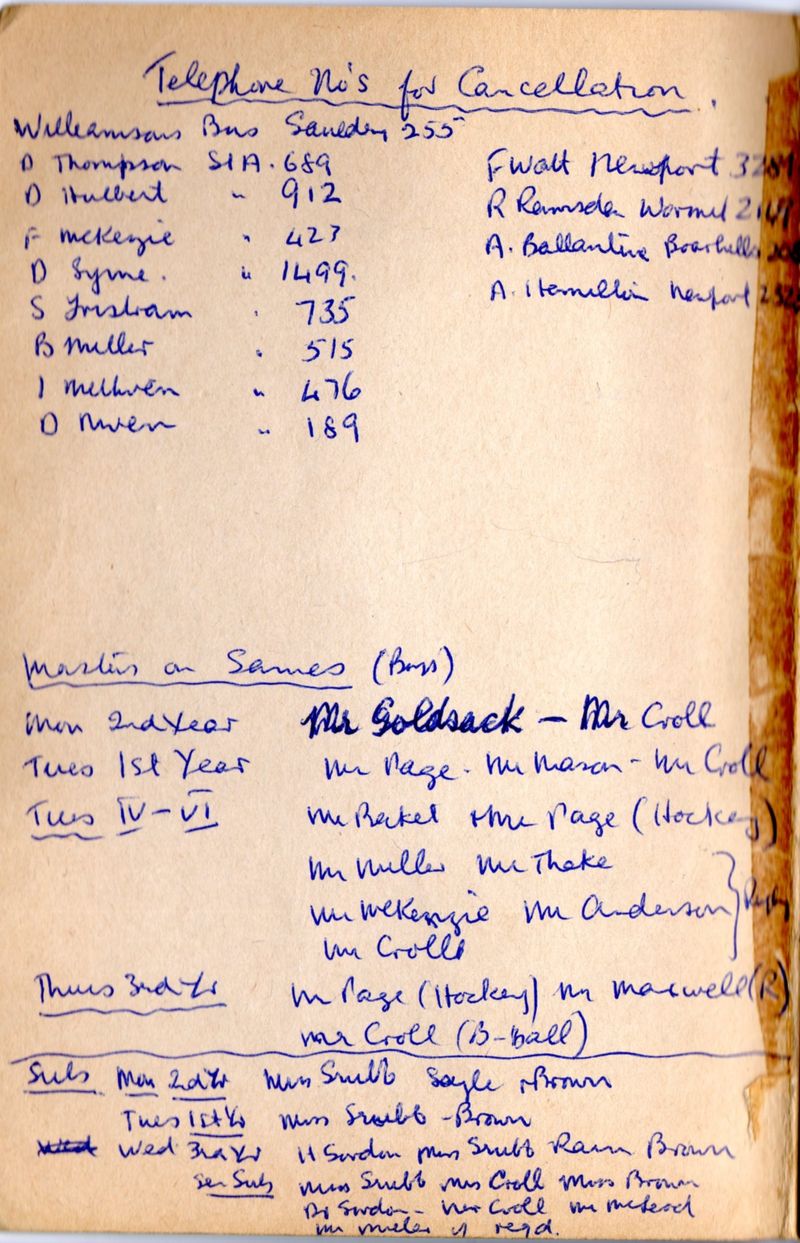 Telephone No's for Cancellation.
Williamsons Bus 255
D Thompson St A. 689
D Hulbert " 912
F McKenzie " 423
D Syme. " 1499.
S Tristram " 735
B Miller " 515
I " 476
D Niven " 189
F Watt Newport
R Ramsden Wormit
A. Ballantine
A. Hamilton Newport
Masters on Games (Boys)
Mon 2nd Year Mr Goldsack - Mr Croll
Tues 1st Year Mr Page - Mr Mason - Mr Croll
Tues IV - VI Mr + Mr Page (Hockey)
Mr Miller Mr Thake
Mr McKenzie Mr Anderson
Mr Croll
Thurs 3rd Yr Mr Page (Hockey) Mr Maxwell (R)
Mr Croll (B-ball)
Subs Mon 2nd Yr Miss + Brown
Tues 1st Yr Miss - Brown
Wed 3rd Yr H Gordon Miss Brown
Sen Subs Miss Croll Miss Brown
Gordon - Croll Mr McLeod
Mr Miller if reqd.